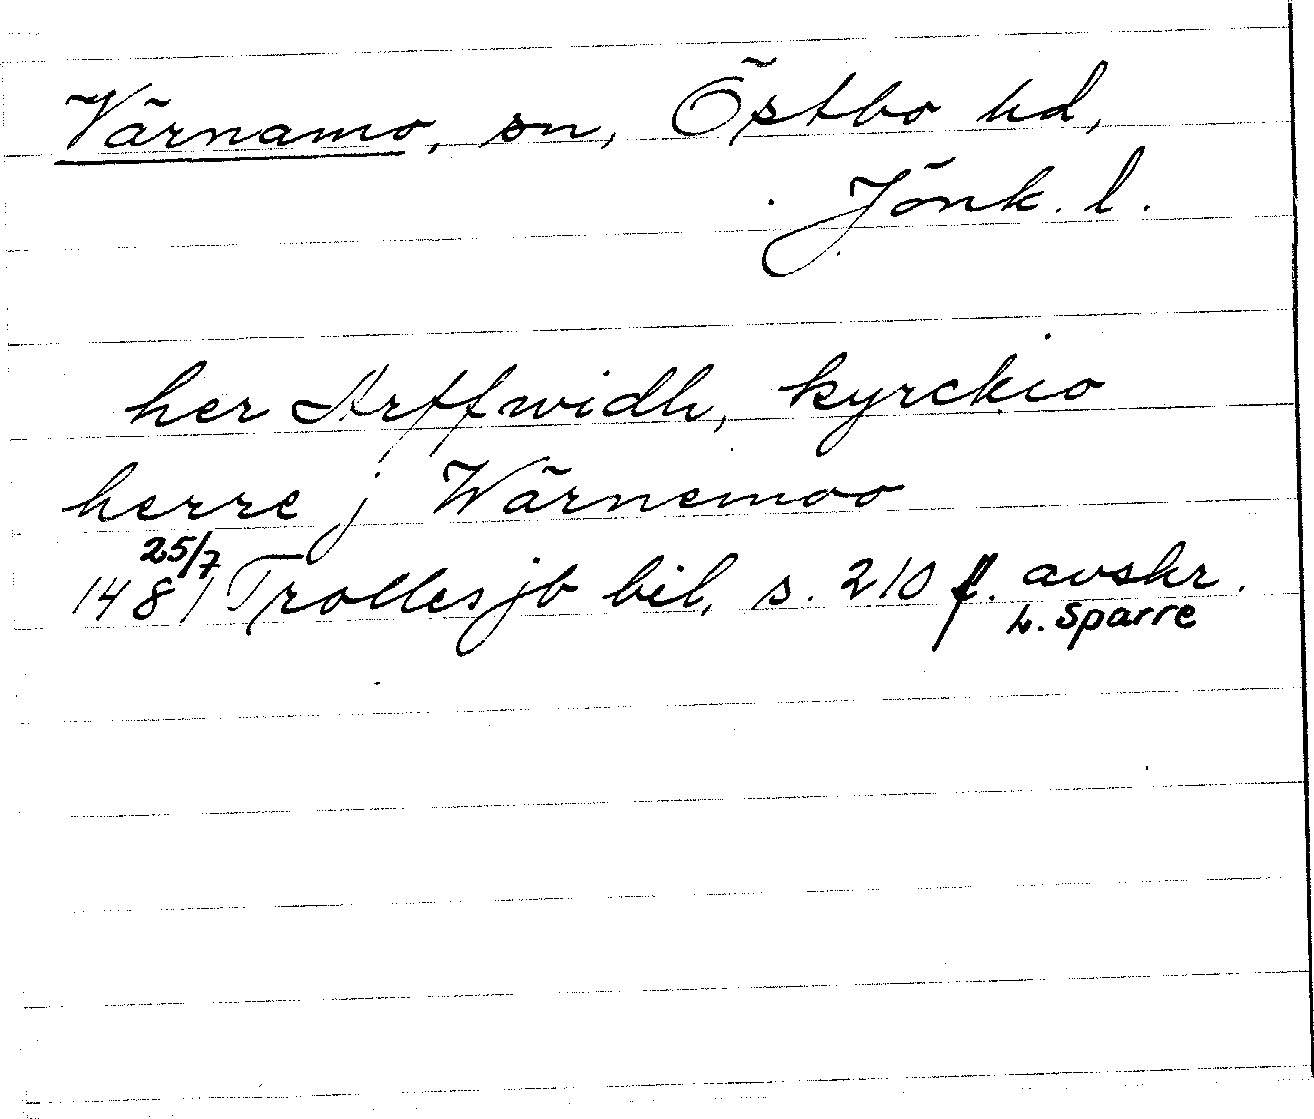 Värnamo, sn, Östbo hd,
Jönk. l.
her Arffwidh, kyrckio
herre j Wärnemoo
25/7
1481 Trolles jb bil, s. 210 f. avskr.
L. Sparre